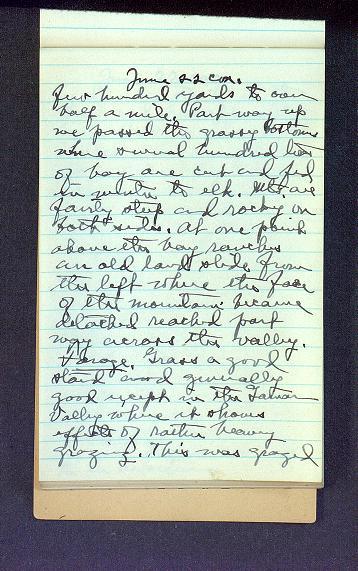 June 22 con.
few hundred yards to over
half a mile. Part way up
we passed the grassy bottoms
where several hundred tons
of hay are cut and fed
in winter to elk. Mts are
fairly steep and rocky on
both sides. At one point
above the hay ranches
an old land slide from
the left where the face
of the mountain became
detached reached part
way across the valley.
Forage. Grass a good
stand and generally
good except in the
Valley where it shows
effects of rather heavy
grazing. This was grazed